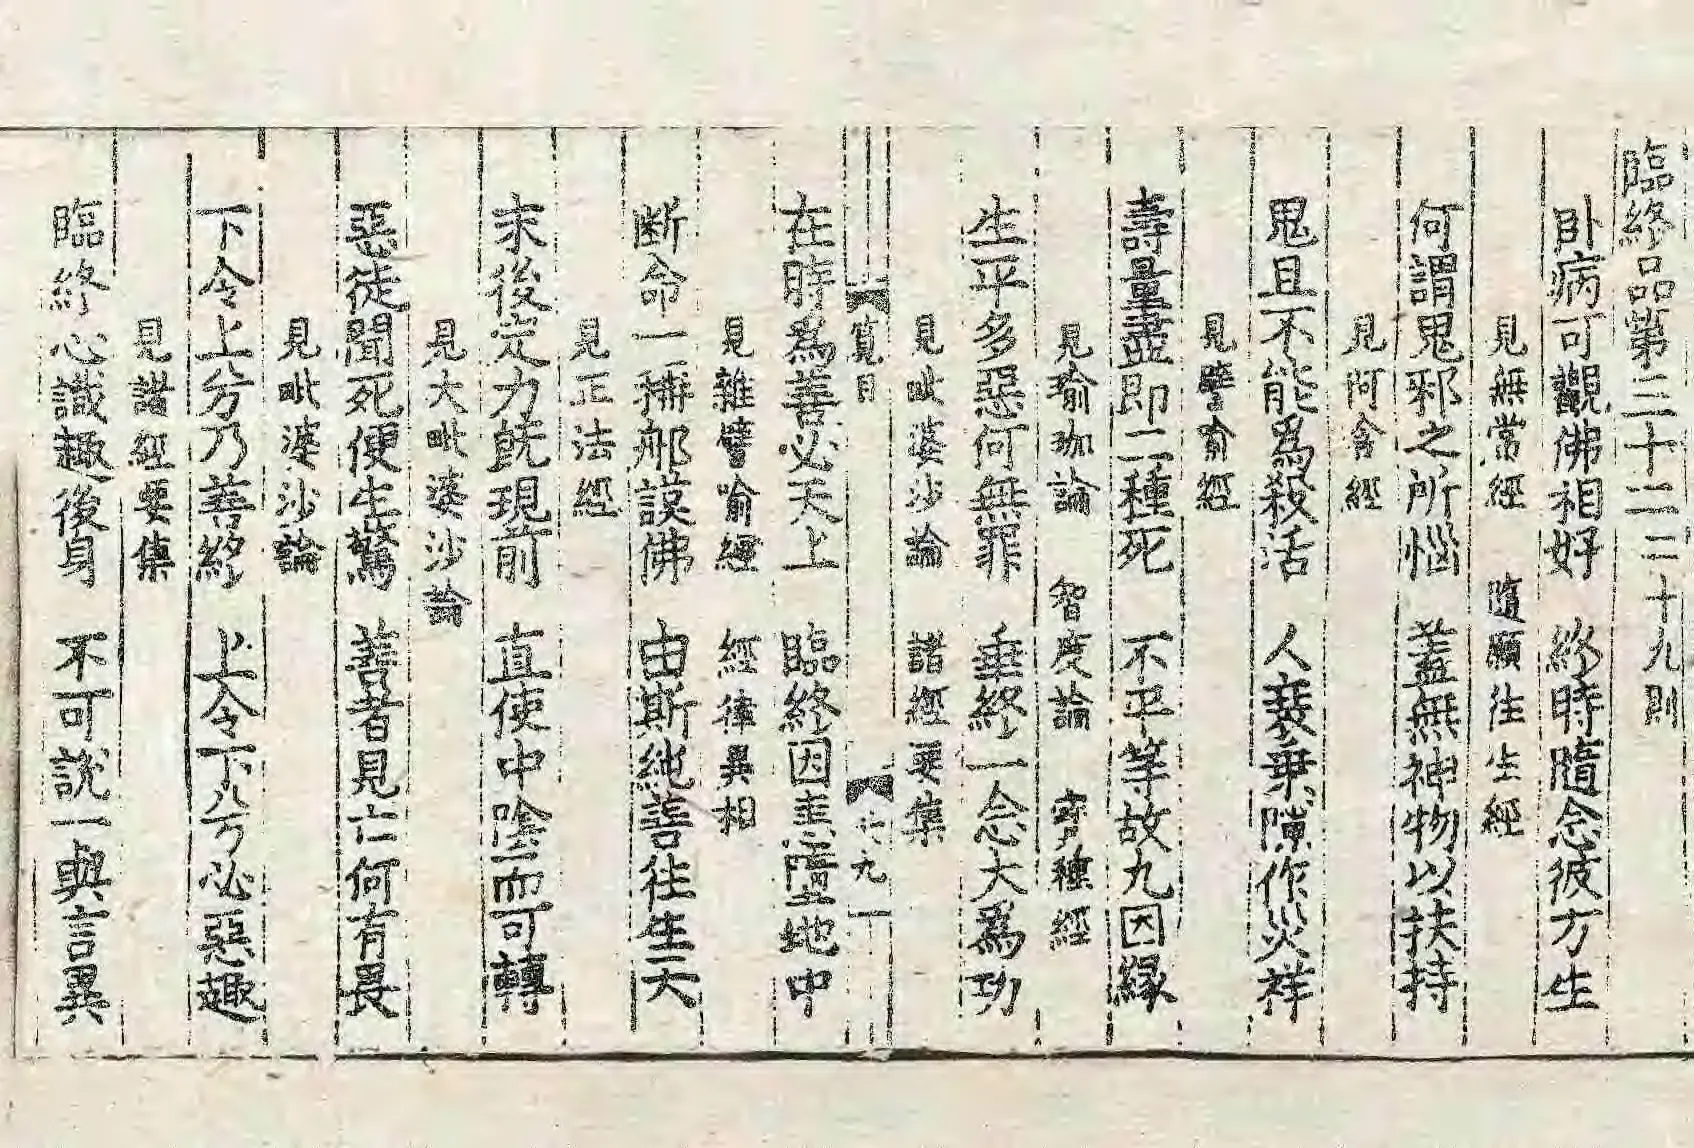 臨終品第三十二 二十九則
卧病可觀佛相好 終時隨念彼方生
見無常經 隨願往生經
何謂鬼邪之所惱 蓋無神物以扶持
見阿含經
鬼且不能爲殺活 人衰乗隙作災祥
見譬喻經
壽量盡即二種死 不平等故九因縁
見瑜珈論 智度論 經
生平多惡何無罪 垂終一念大爲功
見毗婆沙論 諸經要集
覔目 九一
在時爲善必天上 臨終因恚墮地中
見雜譬喻經 經律異相
断命一種邪謨佛 由斯純善往生天
見正法經
末後定力旣現前 直使中陰而可轉
見大毗婆沙論
惡徒聞死便生驚 善者見亡何有畏
見毗婆沙論
下令上分乃善終 上令下分必惡趣
見諸經要集
臨終心識趣後身 不可說一與言異